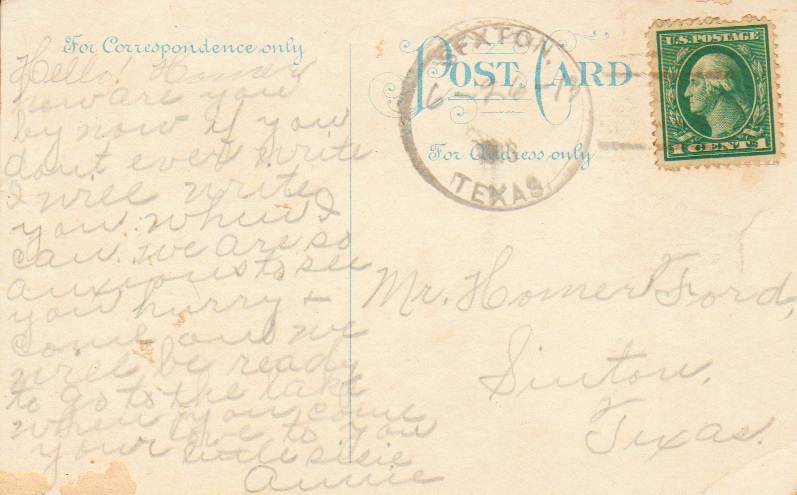 For Correspondence only
Hello! Homer
how are you
by now if you
dont ever write
I will write
you when I
can. we are so
anxious to see
you hurry +
come and we
will be ready
to go to the lake
when you come
love to you
your sisie
Annie
POST CARD
For Address only
SEXTON,
TEXAS.
U.S. POSTAGE
1 CENT 1
Mr. Homer Ford,
Sinton,
Texas.